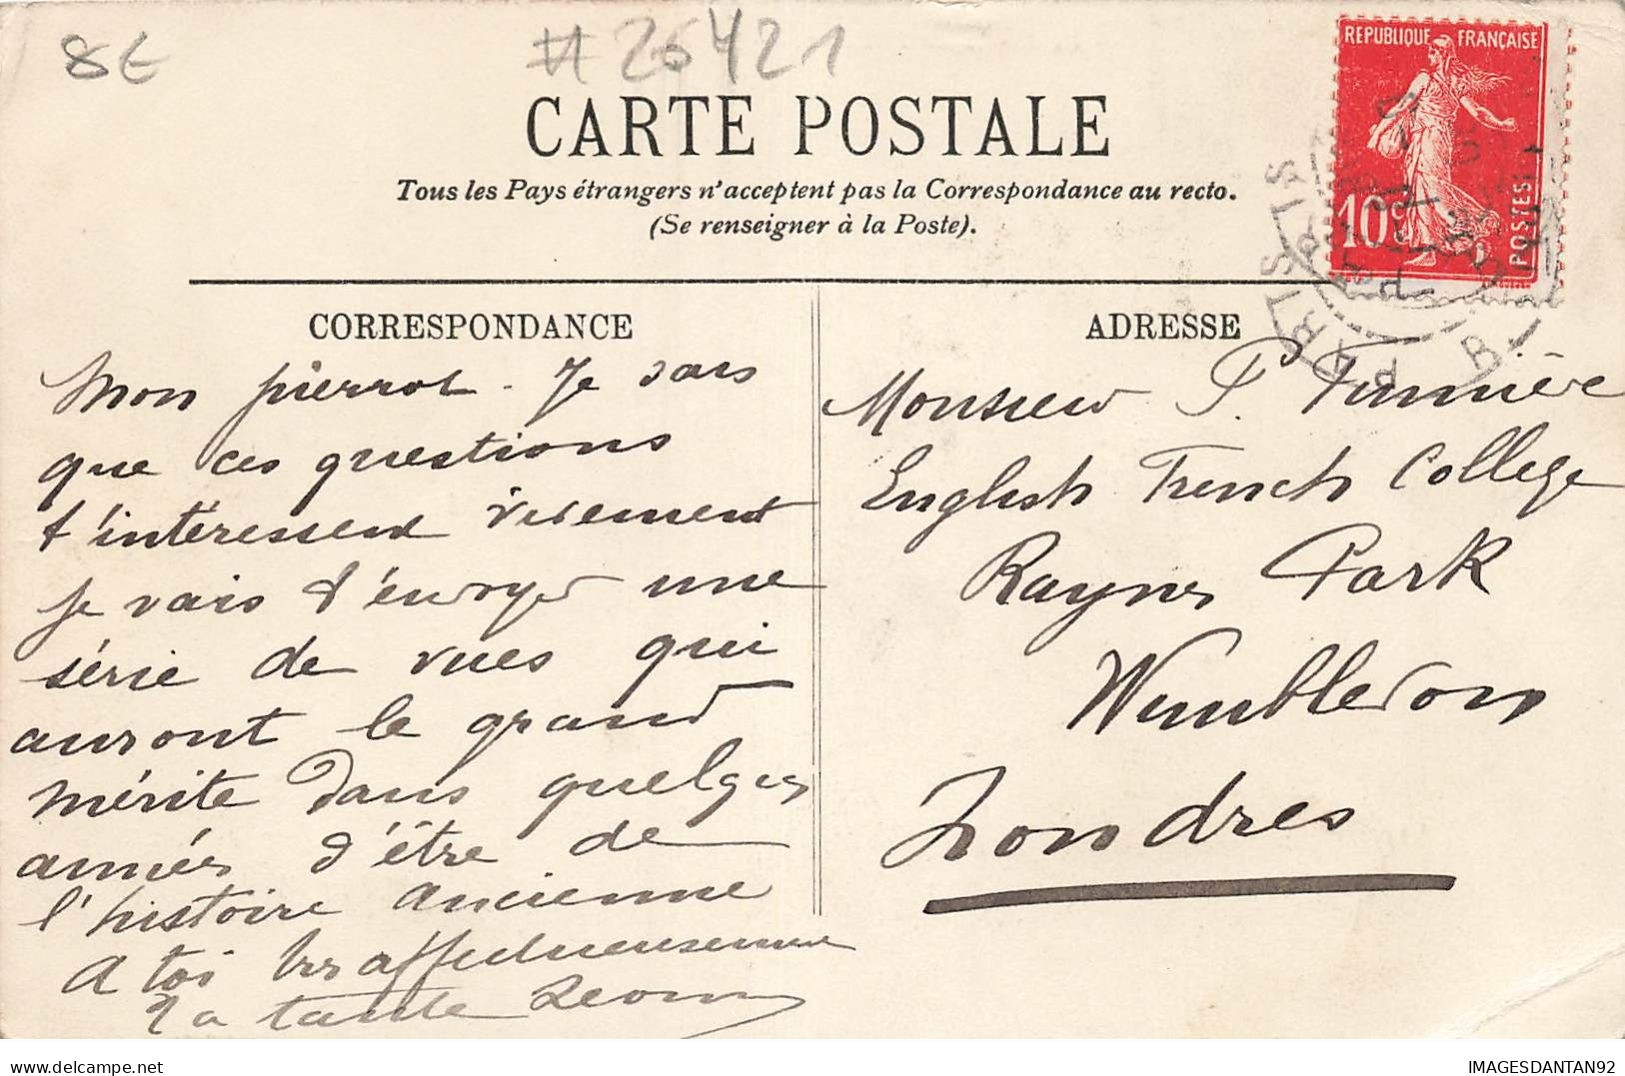 8E
#26421
CARTE POSTALE
Tous les Pays étrangers n'acceptent pas la Correspondance au recto.
(Se renseigner à la Poste).
REPUBLIQUE FRANÇAISE
10c
POSTES
CORRESPONDANCE
Mon pierrot. Je sais
que ces questions
t'intéressent vivement
je vais t'envoyer une
série de vues qui
auront le grand
mérite dans quelques
années d'être de
l'histoire ancienne
A toi très affectueusement
Ta tante
ADRESSE
Monsieur P.
English French College
Raynes Park
Wimbledon
Londres
IMAGESDANTAN92